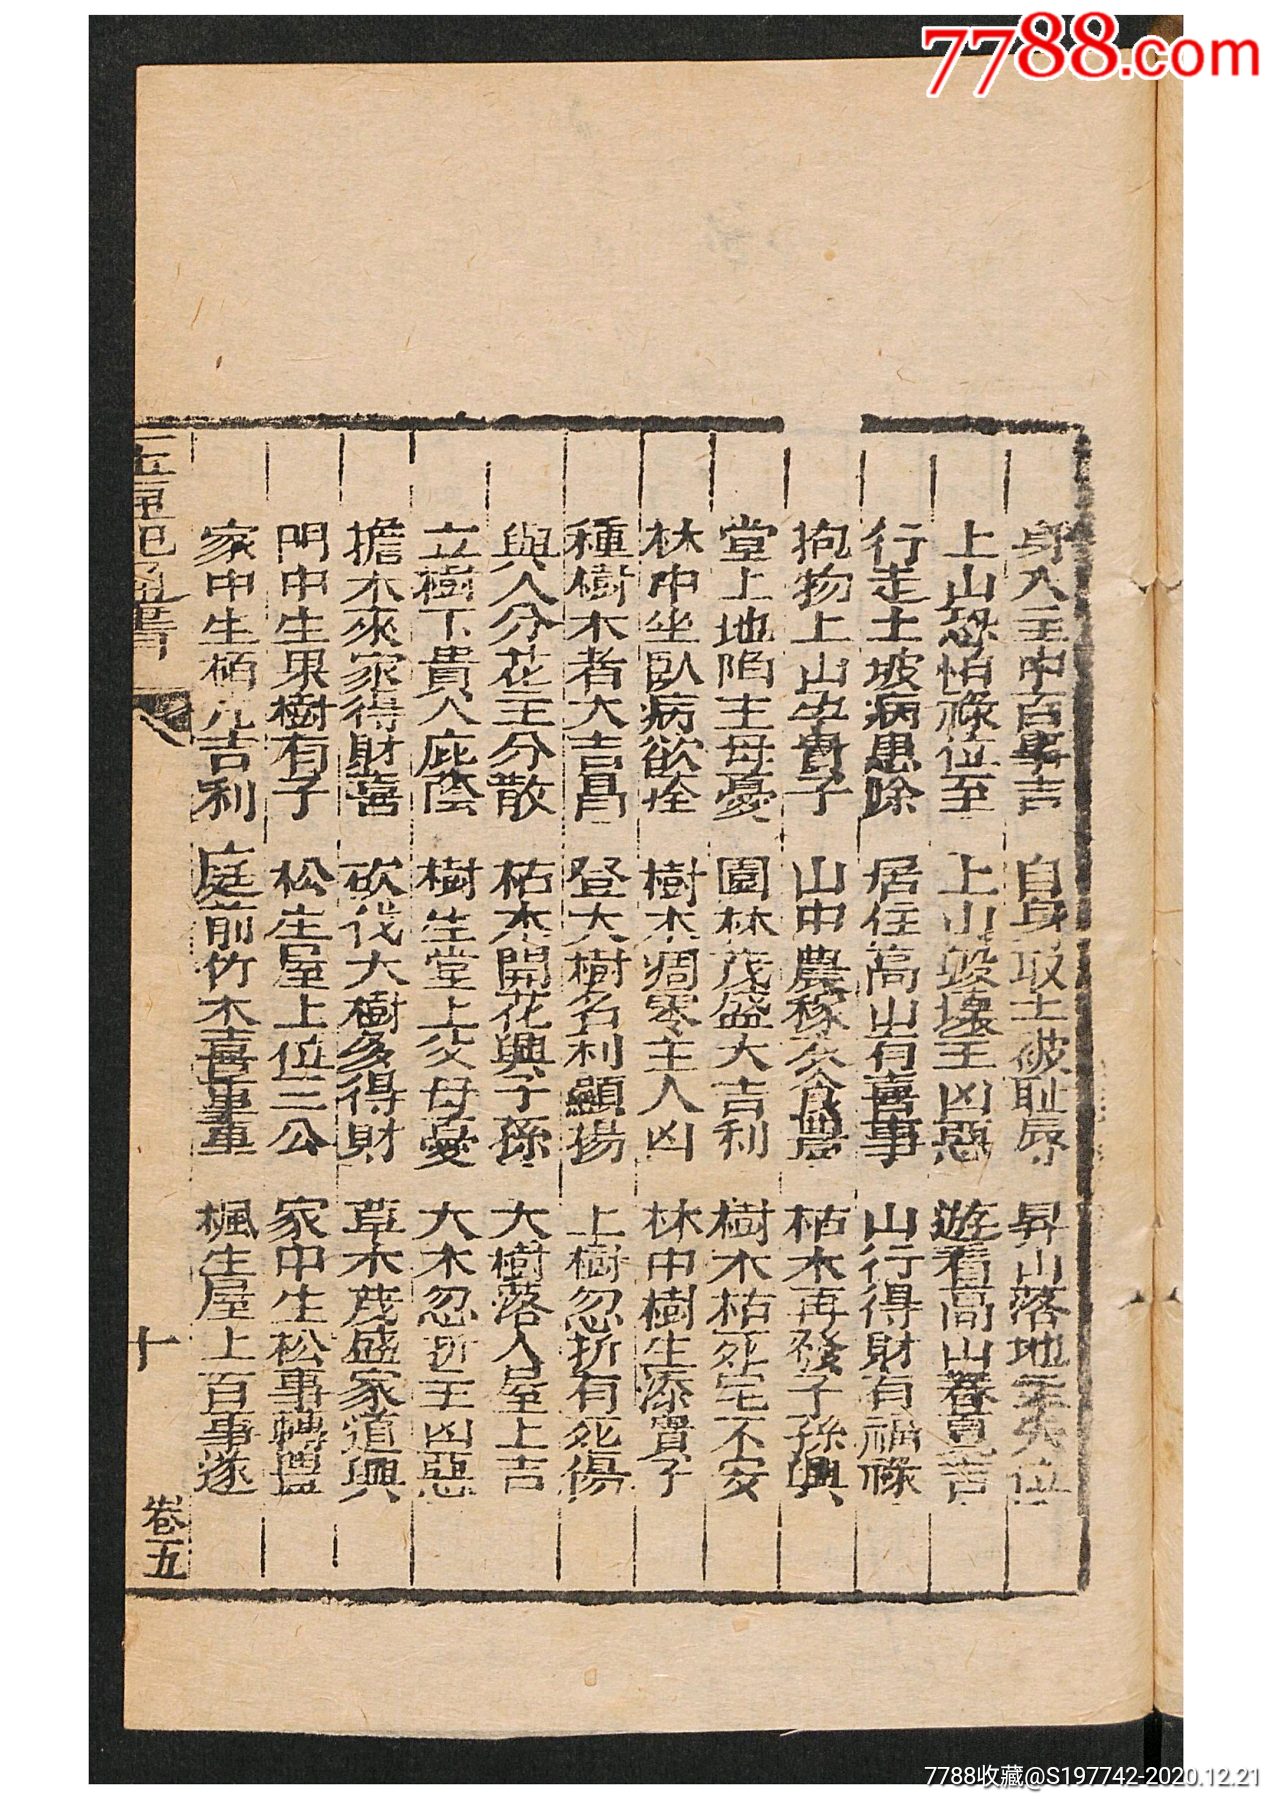 7788.com
身入土中百事吉 自身取土被耻辱 昇山落地主失位
上山恐怕祿位至 上山毀壞主凶惡 遊看高山春夏吉
行走土坡病患除 居住高山有喜事 山行得財有福祿
抱物上山生貴子 山中農稼衣食豊 枯木再發子孫興
堂上地陷主母憂 園林茂盛大吉利 樹木枯死宅不安
林中坐臥病欲痊 樹木凋零主人凶 林中樹生添貴子
種樹木者大吉昌 登大樹名利顯揚 上樹忽折有死傷
與人分花主分散 枯木開花興子孫 大樹落人屋上吉
立樹下貴人庇蔭 樹生堂上父母憂 大木忽折主凶惡
擔木來家得財喜 砍伐大樹多得財 草木茂盛家道興
門中生果樹有子 松生屋上位三公 家中生松事轉
家中生栢 吉利 庭前竹木喜重重 楓生屋上百事遂
玉匣記通書 十 卷五
7788收藏@S197742-2020.12.21